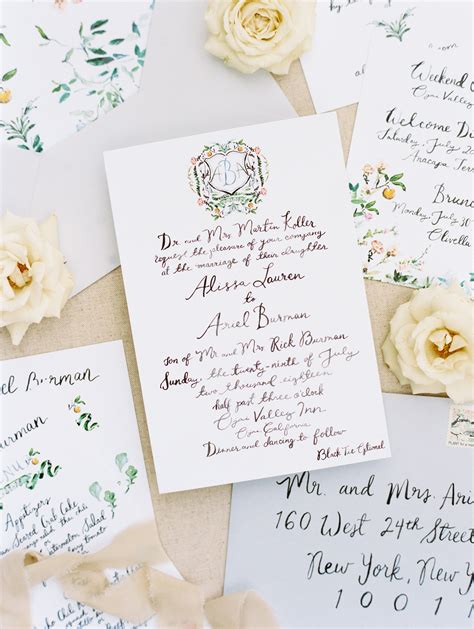 Weekend
Ojai Valley
Welcome Di
Saturday, July
Anacapa Ter
Brunc
Monday, July 30
Olivella
ABN
Dr. and Mrs. Martin Koller
request the pleasure of your company
at the marriage of their daughter
Alissa Lauren
to
Ariel Burman
son of Mr. and Mrs. Rick Burman
Sunday, the twenty-ninth of July
two thousand eighteen
half past three o'clock
Ojai Valley Inn
Ojai California
Dinner and dancing to follow
Black Tie Optional
el Burman
Burman
NU
Appetizers
Crab Cake
Watermelon Salad
Mr. and Mrs. Ari
160 West 24th Street
New York, New Y
1001